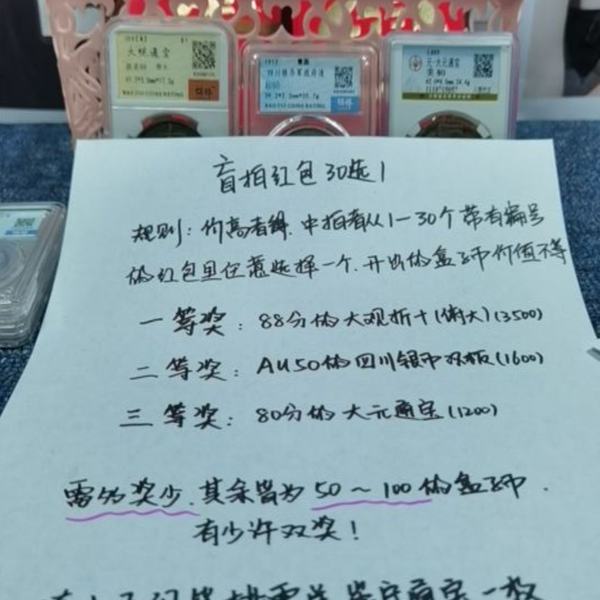 大观通宝
四川银币军政府造
元·大元通宝
盲拍红包30选1
规则：价高者得，中拍者从1—30个带有编号
的红包里任意选择一个，开出的盒子币价值不等
一等奖：88分的大观折十(俏大)(3500)
二等奖：AU50的四川银币双板(1600)
三等奖：80分的大元通宝(1200)
雷多奖少，其余皆为50～100的盒子币．
有少许双奖！